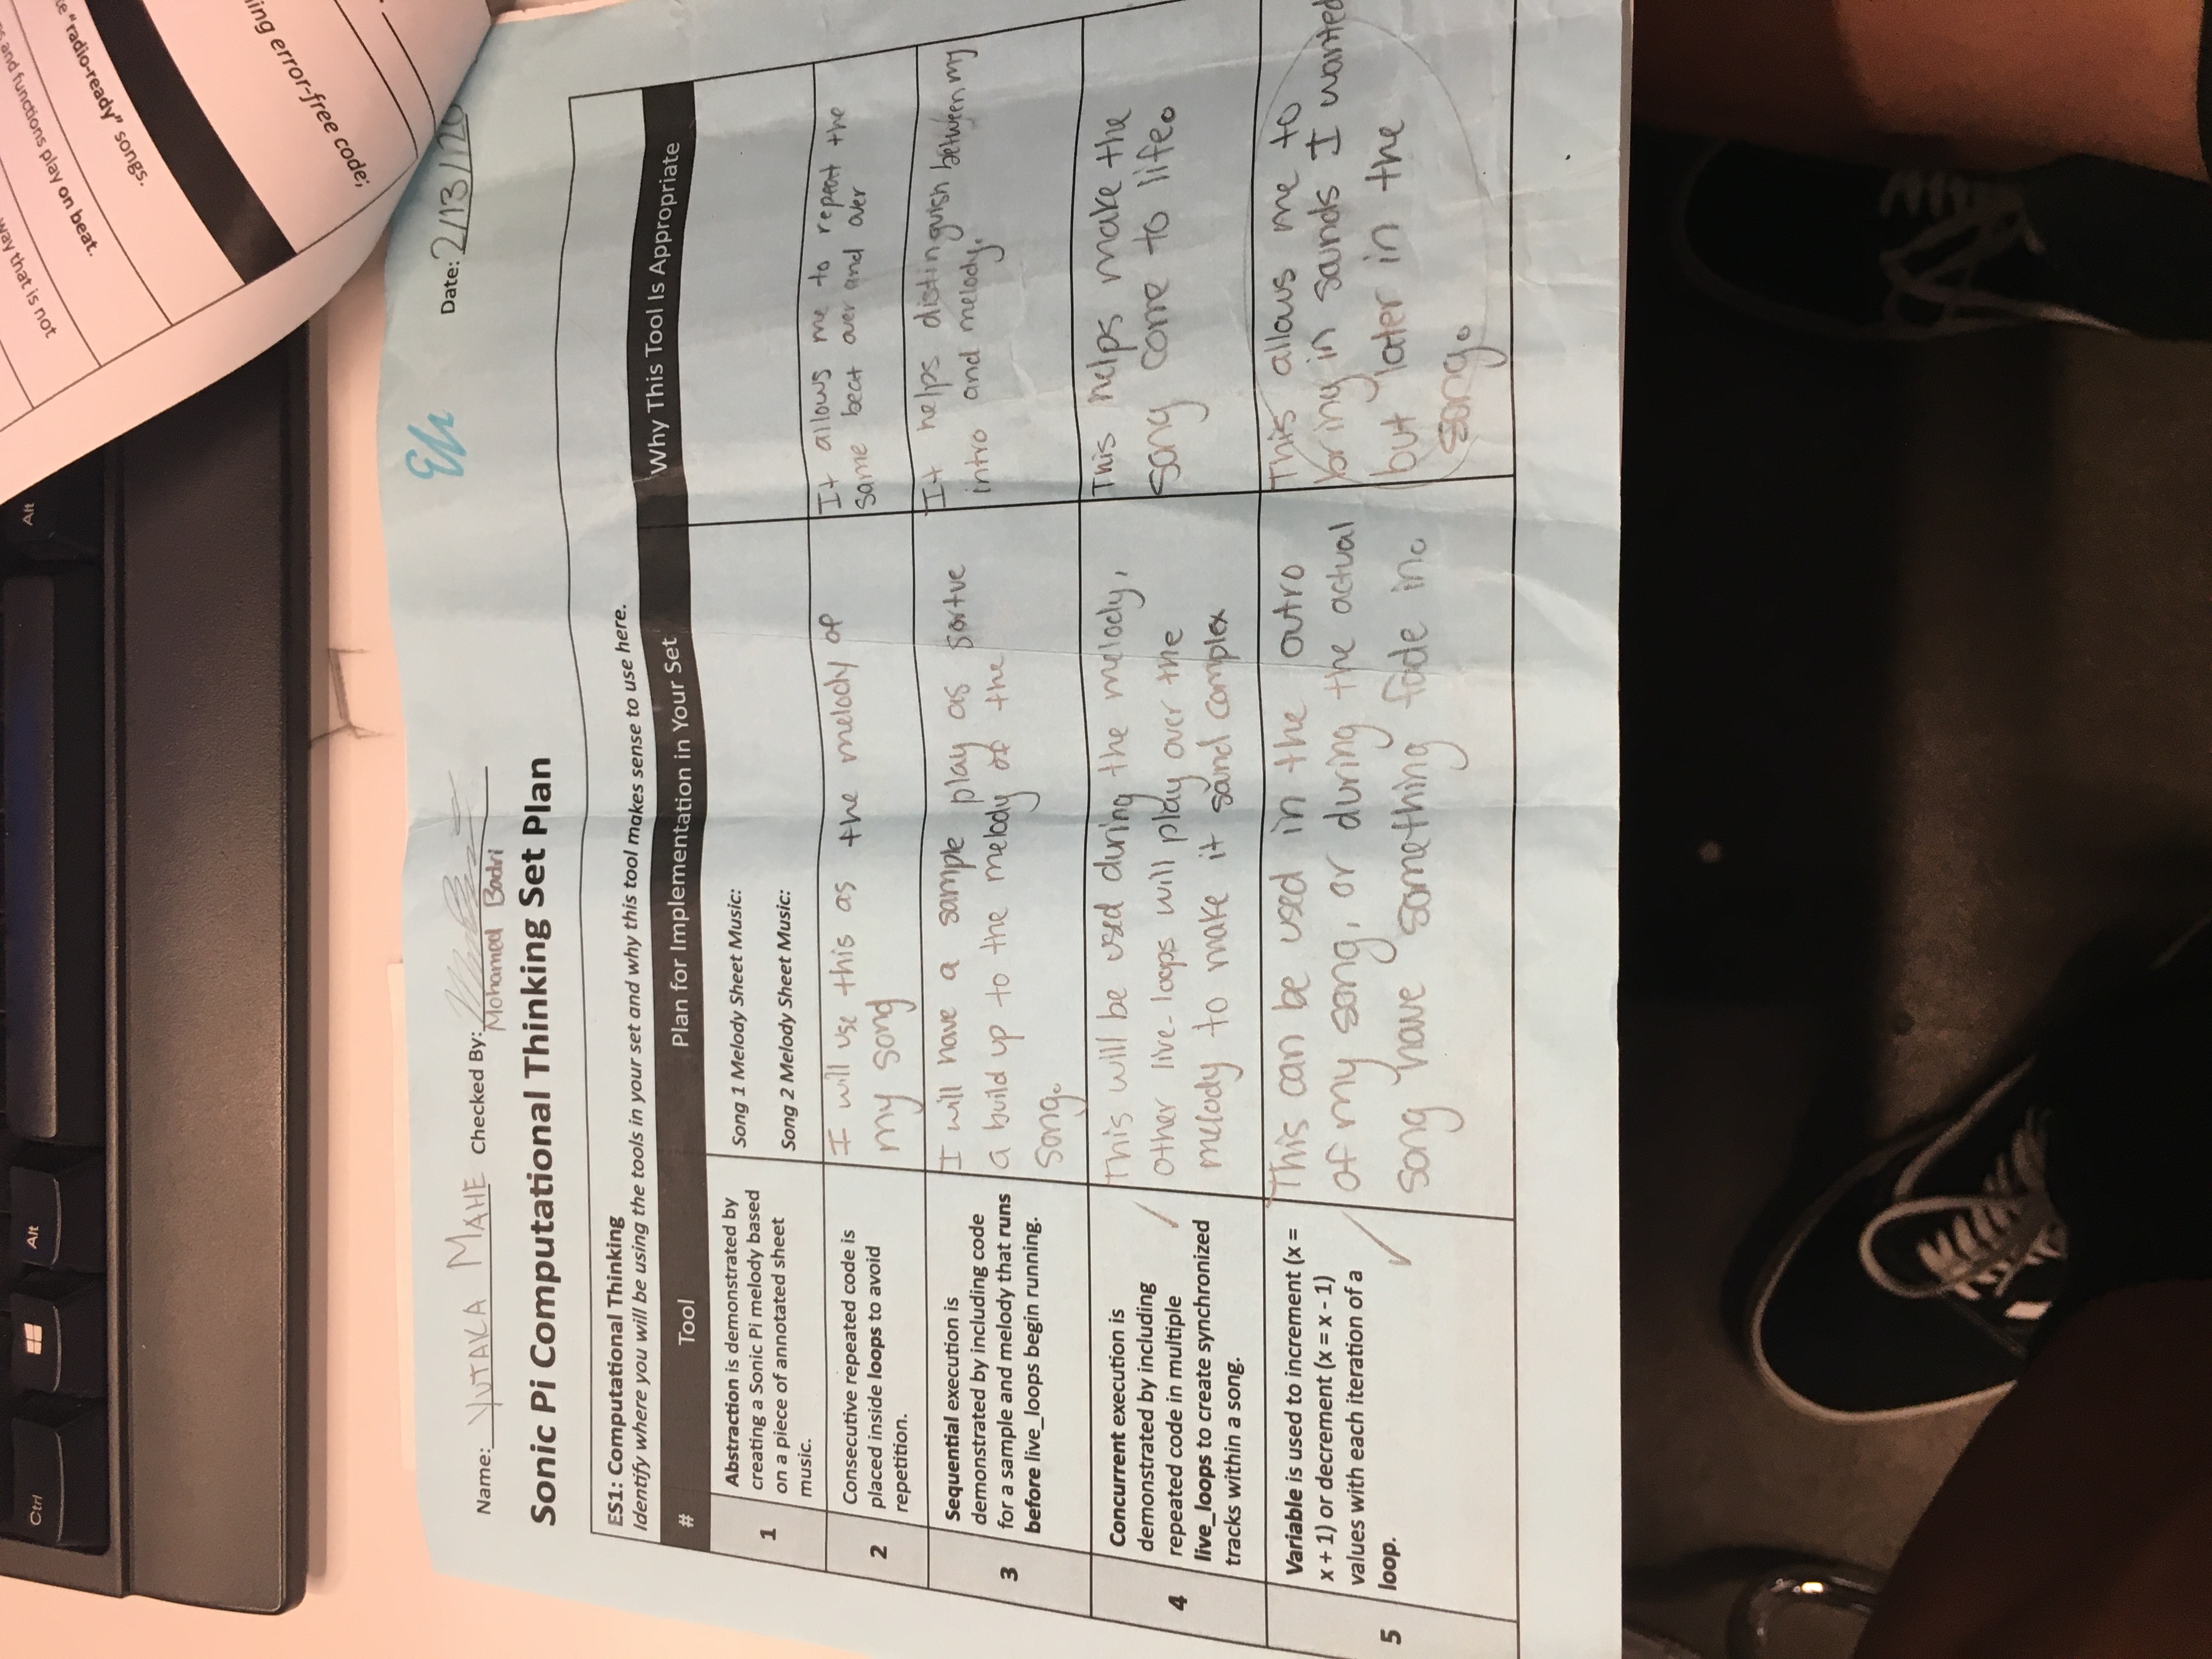 Ctrl
Alt
Alt
way that is not
and functions play on beat.
"radio-ready" songs.
error-free code;
Name: YUTAKA MAHE Checked By:
Date: 2/13/20
Mohamed Badri
Sonic Pi Computational Thinking Set Plan
ES1: Computational Thinking
Identify where you will be using the tools in your set and why this tool makes sense to use here.
# Tool Plan for Implementation in Your Set Why This Tool Is Appropriate
1
Abstraction is demonstrated by
creating a Sonic Pi melody based
on a piece of annotated sheet
music.
Song 1 Melody Sheet Music:
Song 2 Melody Sheet Music:
2
Consecutive repeated code is
placed inside loops to avoid
repetition.
I will use this as the melody of
my song
It allows me to repeat the
same beat over and over
3
Sequential execution is
demonstrated by including code
for a sample and melody that runs
before live_loops begin running.
I will have a sample play as sortve
a build up to the melody of the
song.
It helps distinguish between my
intro and melody.
4
Concurrent execution is
demonstrated by including
repeated code in multiple
live_loops to create synchronized
tracks within a song.
This will be used during the melody,
other live-loops will play over the
melody to make it sound complex
This helps make the
song come to life.
5
Variable is used to increment (x =
x + 1) or decrement (x = x - 1)
values with each iteration of a
loop.
This can be used in the outro
of my song, or during the actual
song have something fade in.
This allows me to
bring in sounds I wanted
but later in the
song.